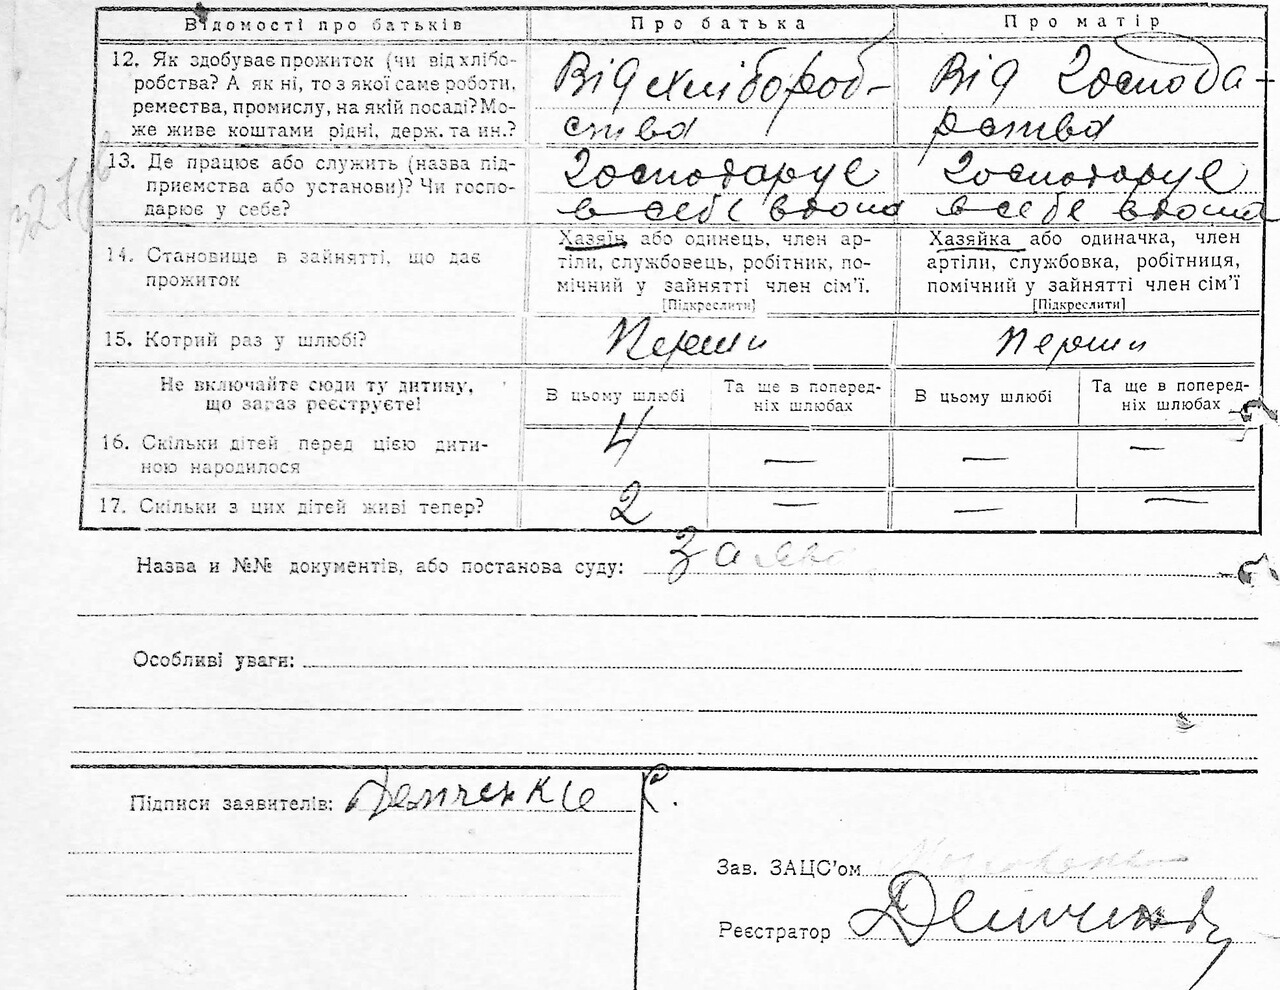 Відомості про батьків
Про батька
Про матір
12. Як здобуває прожиток (чи від хлібо-
робства? А як ні, то з якої саме роботи,
ремества, промислу, на якій посаді? Мо-
же живе коштами рідні, держ. та ин.?
Від хлібороб-
ства
Від господа-
рства
13. Де працює або служить (назва під-
приємства або установи)? Чи госпо-
дарює у себе?
Господарує
в себе вдома
Господарує
в себе вдома
14. Становище в зайнятті, що дає
прожиток
Хазяїн, або одинець, член ар-
тіли, службовець, робітник, по-
мічний у зайнятті член сім'ї.
[Підкреслити]
Хазяйка або одиначка, член
артіли, службовка, робітниця,
помічний у зайнятті член сім'ї
[Підкреслити]
15. Котрий раз у шлюбі?
Перши
перши
Не включайте сюди ту дитину,
що зараз реєструєте!
В цьому шлюбі
Та ще в поперед-
ніх шлюбах
В цьому шлюбі
Та ще в поперед-
ніх шлюбах
16. Скільки дітей перед цією дити-
ною народилося
4 — — —
17. Скільки з цих дітей живі тепер?
2 — — —
Назва и №№ документів, або постанова суду: заява
Особливі уваги:
Підписи заявителів:
Зав. ЗАЦС'ом
Реєстратор